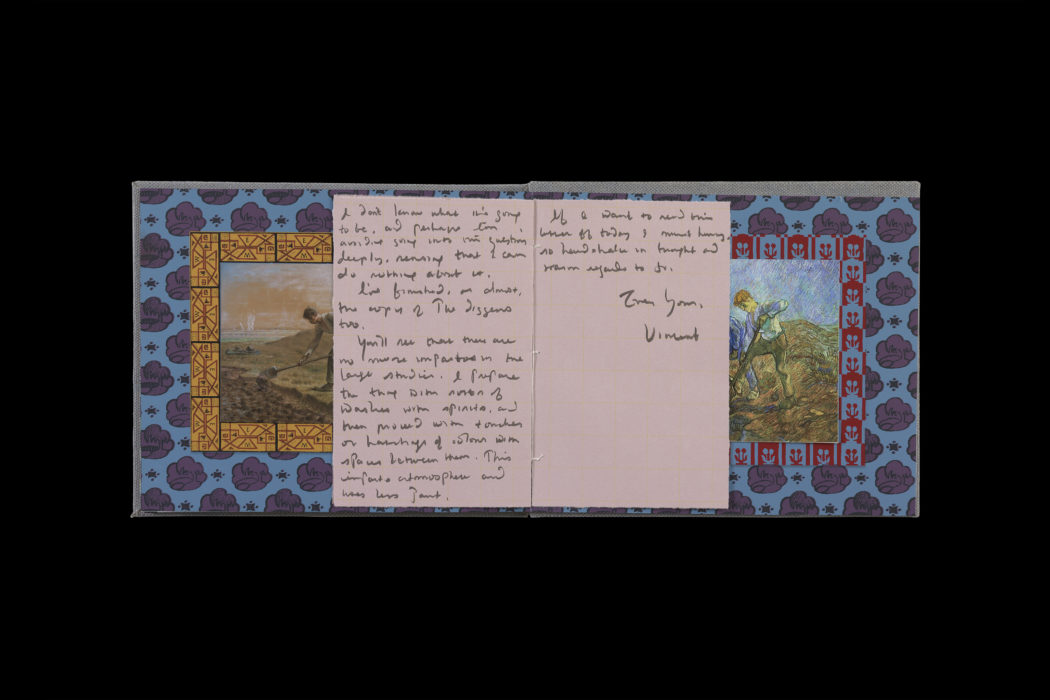 I don't know what it's going
to be, and perhaps I'm
avoiding going into this question
deeply, sensing that I can
do nothing about it.
I've finished, or almost,
the copy of The diggers
too.
You'll see that there are
no more impastos in the
large studies. I prepare
the thing with sorts of
washes with spirits, and
then proceed with touches
or hatchings of colour with
spaces between them. This
imparts atmosphere and
uses less paint.
If I want to send this
letter off today I must hurry,
so handshake in thought and
warm regards to Jo.
Ever Yours,
Vincent